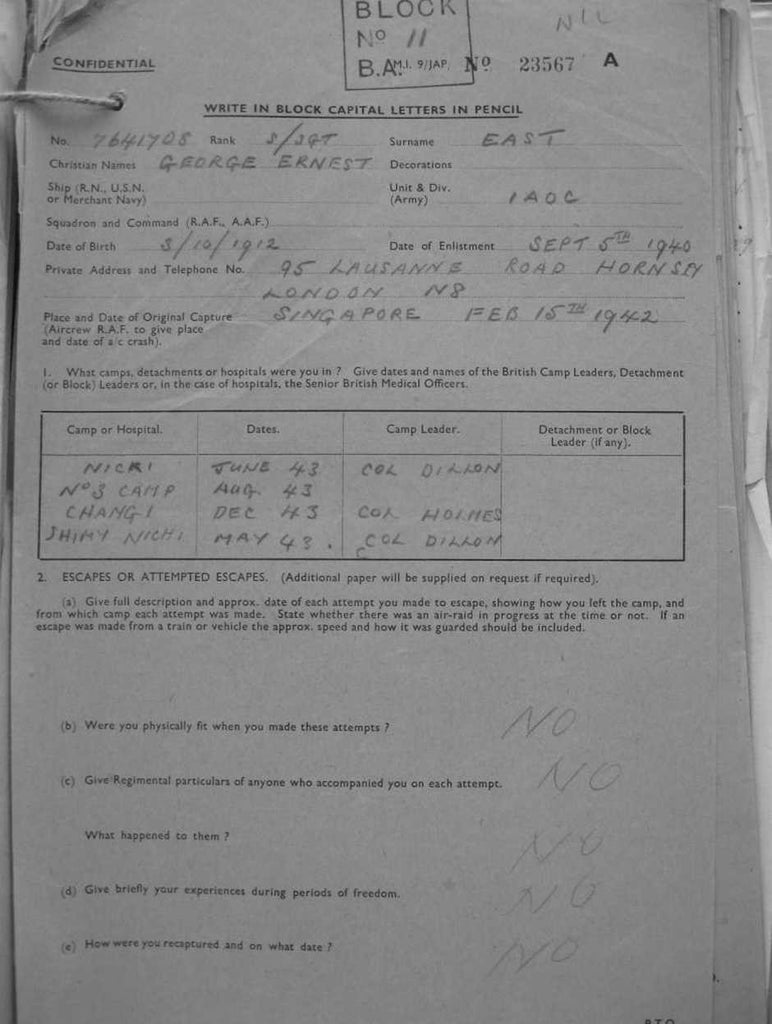 BLOCK
Nº 11
B.A. M.I. 9/JAP. Nº 23567 A
NIL
CONFIDENTIAL
WRITE IN BLOCK CAPITAL LETTERS IN PENCIL
No. 7641708 Rank S/SGT Surname EAST
Christian Names GEORGE ERNEST Decorations
Ship (R.N., U.S.N. or Merchant Navy) Unit & Div. (Army) IAOC
Squadron and Command (R.A.F., A.A.F.)
Date of Birth 3/10/1912 Date of Enlistment SEPT 5TH 1940
Private Address and Telephone No. 95 LAUSANNE ROAD HORNSEY
LONDON N8
Place and Date of Original Capture SINGAPORE FEB 15TH 1942
(Aircrew R.A.F. to give place
and date of a/c crash).
1. What camps, detachments or hospitals were you in ? Give dates and names of the British Camp Leaders, Detachment
(or Block) Leaders or, in the case of hospitals, the Senior British Medical Officers.
Camp or Hospital. Dates. Camp Leader. Detachment or Block Leader (if any).
NICKI JUNE 43 COL DILLON
Nº3 CAMP AUG. 43
CHANGI DEC 43 COL HOLMES
SHIMY NICHI MAY 43. COL DILLON
2. ESCAPES OR ATTEMPTED ESCAPES. (Additional paper will be supplied on request if required).
(a) Give full description and approx. date of each attempt you made to escape, showing how you left the camp, and
from which camp each attempt was made. State whether there was an air-raid in progress at the time or not. If an
escape was made from a train or vehicle the approx. speed and how it was guarded should be included.
(b) Were you physically fit when you made these attempts ? NO
(c) Give Regimental particulars of anyone who accompanied you on each attempt. NO
What happened to them ? NO
(d) Give briefly your experiences during periods of freedom. NO
(e) How were you recaptured and on what date ? NO
P.T.O.